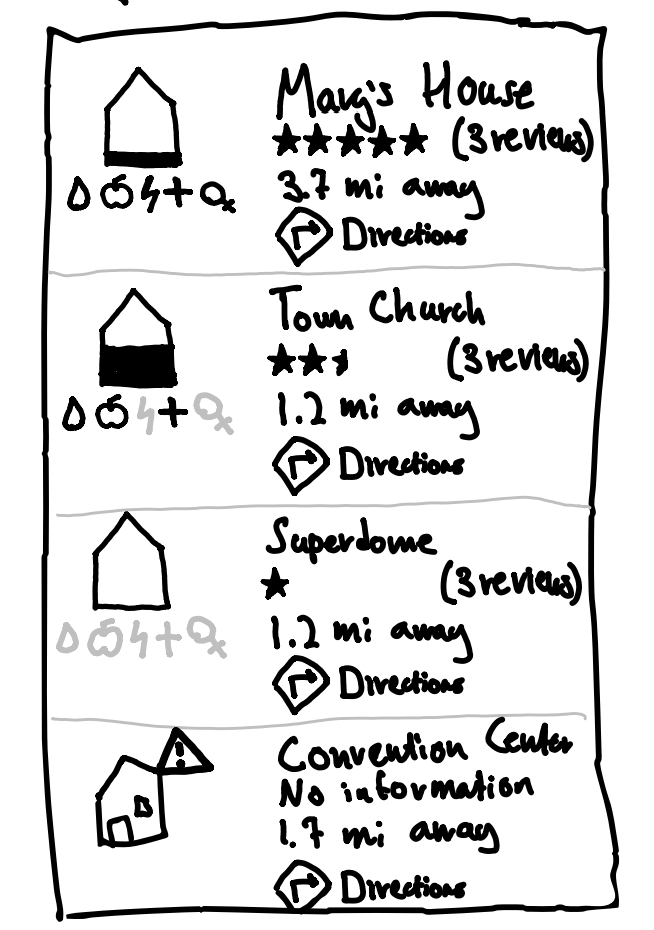 Marg's House
★★★★★ (3 reviews)
3.7 mi away
Directions
Town Church
(3 reviews)
1.2 mi away
Directions
Superdome
★ (3 reviews)
1.2 mi away
Directions
Convention Center
No information
1.7 mi away
Directions